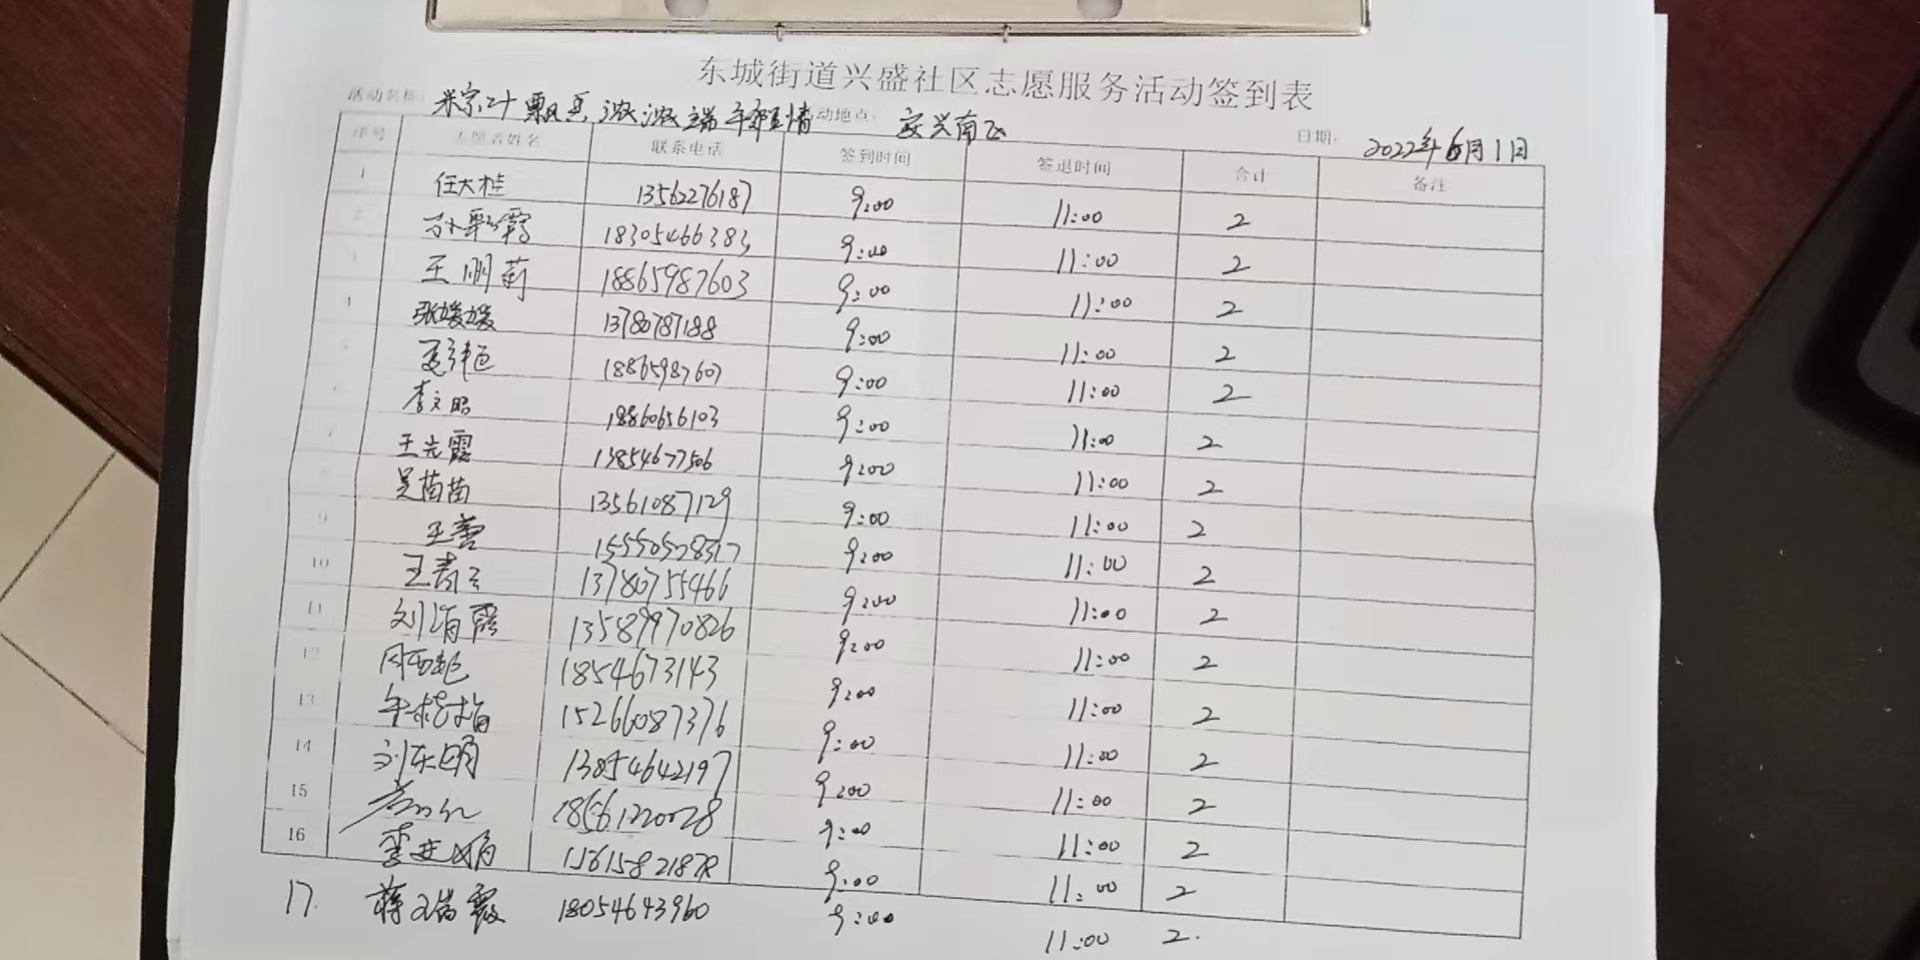 东城街道兴盛社区志愿服务活动签到表
活动名称: 飘 浓浓端午 情 活动地点: 安兴南 日期: 2022年6月1日
序号 志愿者姓名 联系电话 签到时间 签退时间 合计 备注
1 任大桂 13562276187 9:00 11:00 2
2 18305466383 9:00 11:00 2
3 王 莉 18865987603 9:00 11:00 2
4 张媛媛 13780787188 9:00 11:00 2
5 18865987607 9:00 11:00 2
6 李文明 18860656103 9:00 11:00 2
7 王先霞 13854677506 9:00 11:00 2
8 吴苗苗 13561087129 9:00 11:00 2
9 王 9:00 11:00 2
10 王 13780755466 9:00 11:00 2
11 刘 霞 13589970826 9:00 11:00 2
12 1854673143 9:00 11:00 2
13 15266087376 9:00 11:00 2
14 刘东 13854642197 9:00 11:00 2
15 18561220028 9:00 11:00 2
16 李亚娟 9:00 11:00 2
17. 蒋瑞霞 18054643960 9:00 11:00 2.